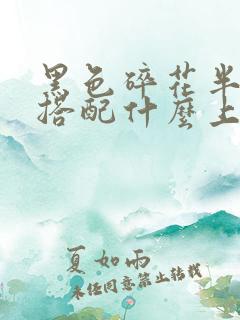 黑色碎花半
搭配什麼上
夏如雨
未经同意禁止转载